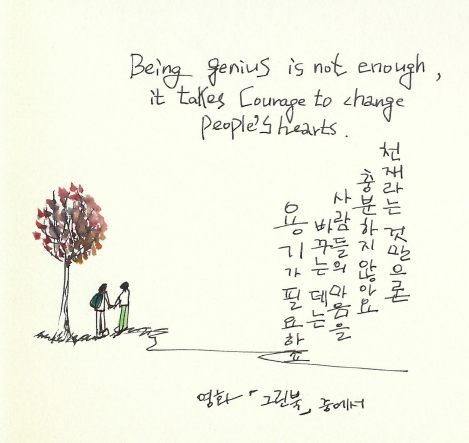 Being genius is not enough,
it takes Courage to change
people's hearts.
천재라는 것만으론
충분하지 않아요
사람들의 마음을
바꾸는 데는
용기가 필요하죠
영화 「그린북」 중에서